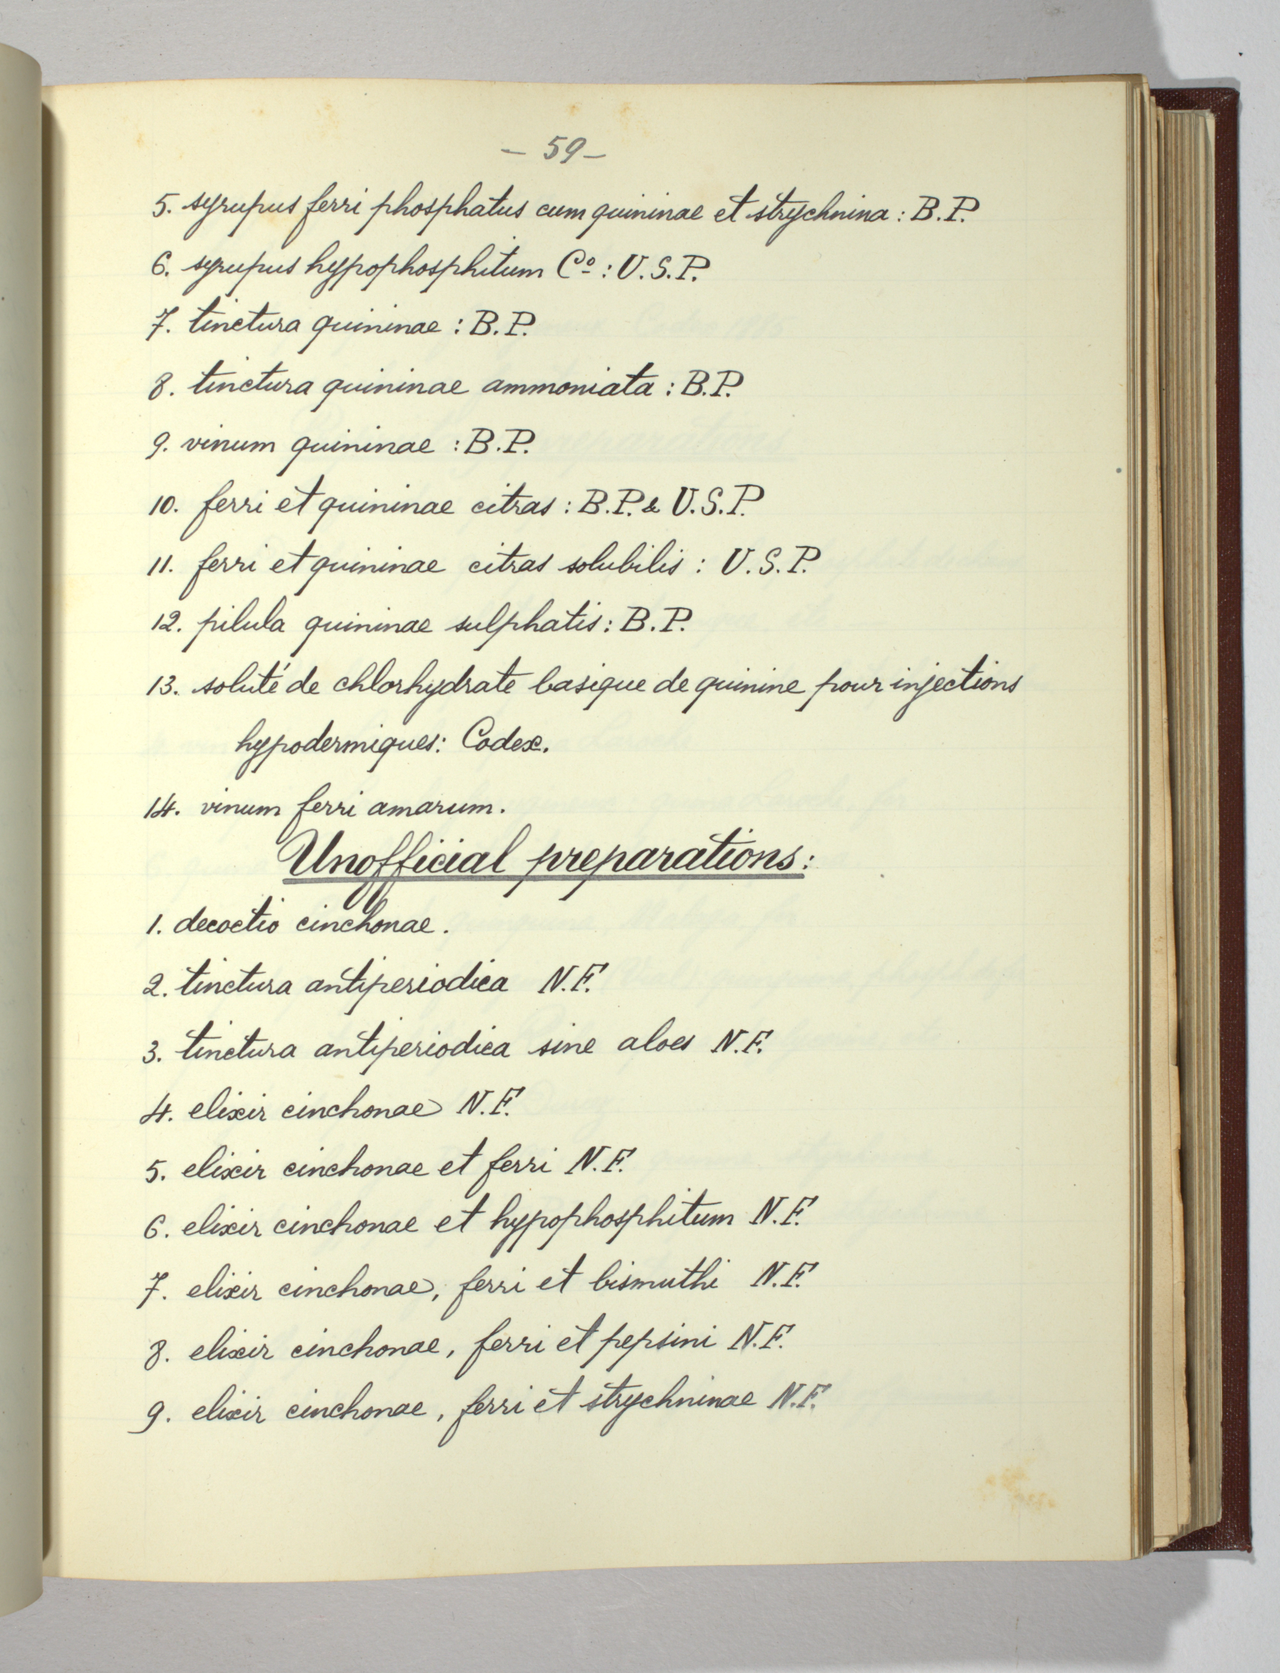 - 59 -
5. syrupus ferri phosphatus cum quininae et strychnina : B.P.
6. syrupus hypophosphitum Cº : U.S.P.
7. tinctura quininae : B.P.
8. tinctura quininae ammoniata : B.P.
9. vinum quininae : B.P.
10. ferri et quininae citras : B.P. & U.S.P.
11. ferri et quininae citras solubilis : U.S.P.
12. pilula quininae sulphatis : B.P.
13. soluté de chlorhydrate basique de quinine pour injections
hypodermiques : Codex.
14. vinum ferri amarum.
Unofficial preparations :
1. decoctio cinchonae.
2. tinctura antiperiodica N.F.
3. tinctura antiperiodica sine aloes N.F.
4. elixir cinchonae N.F.
5. elixir cinchonae et ferri N.F.
6. elixir cinchonae et hypophosphitum N.F.
7. elixir cinchonae, ferri et bismuthi N.F.
8. elixir cinchonae, ferri et pepsini N.F.
9. elixir cinchonae, ferri et strychninae N.F.